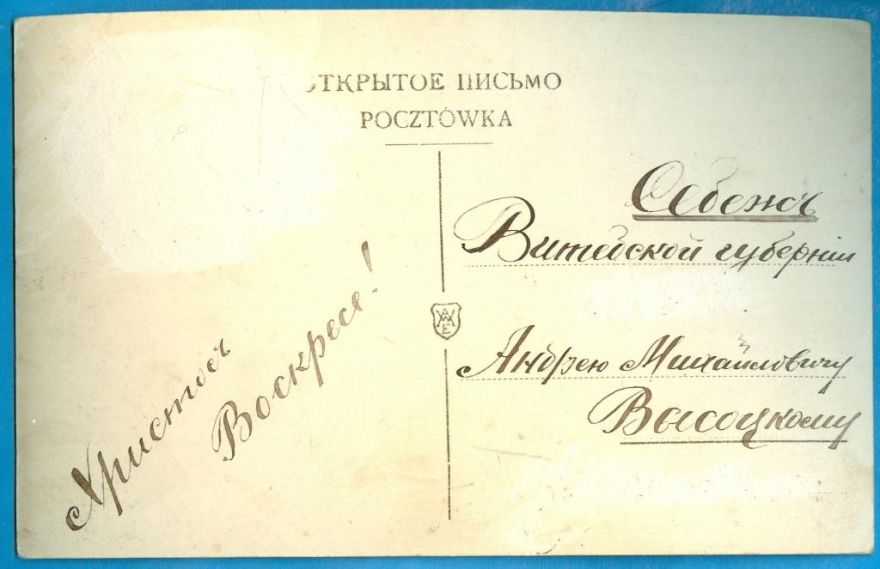 ОТКРЫТОЕ ПИСЬМО
POCZTÓWKA
Себежъ
Витебской губерніи
Андрею Михайловичу
Высоцкому
Христосъ
Воскресе!